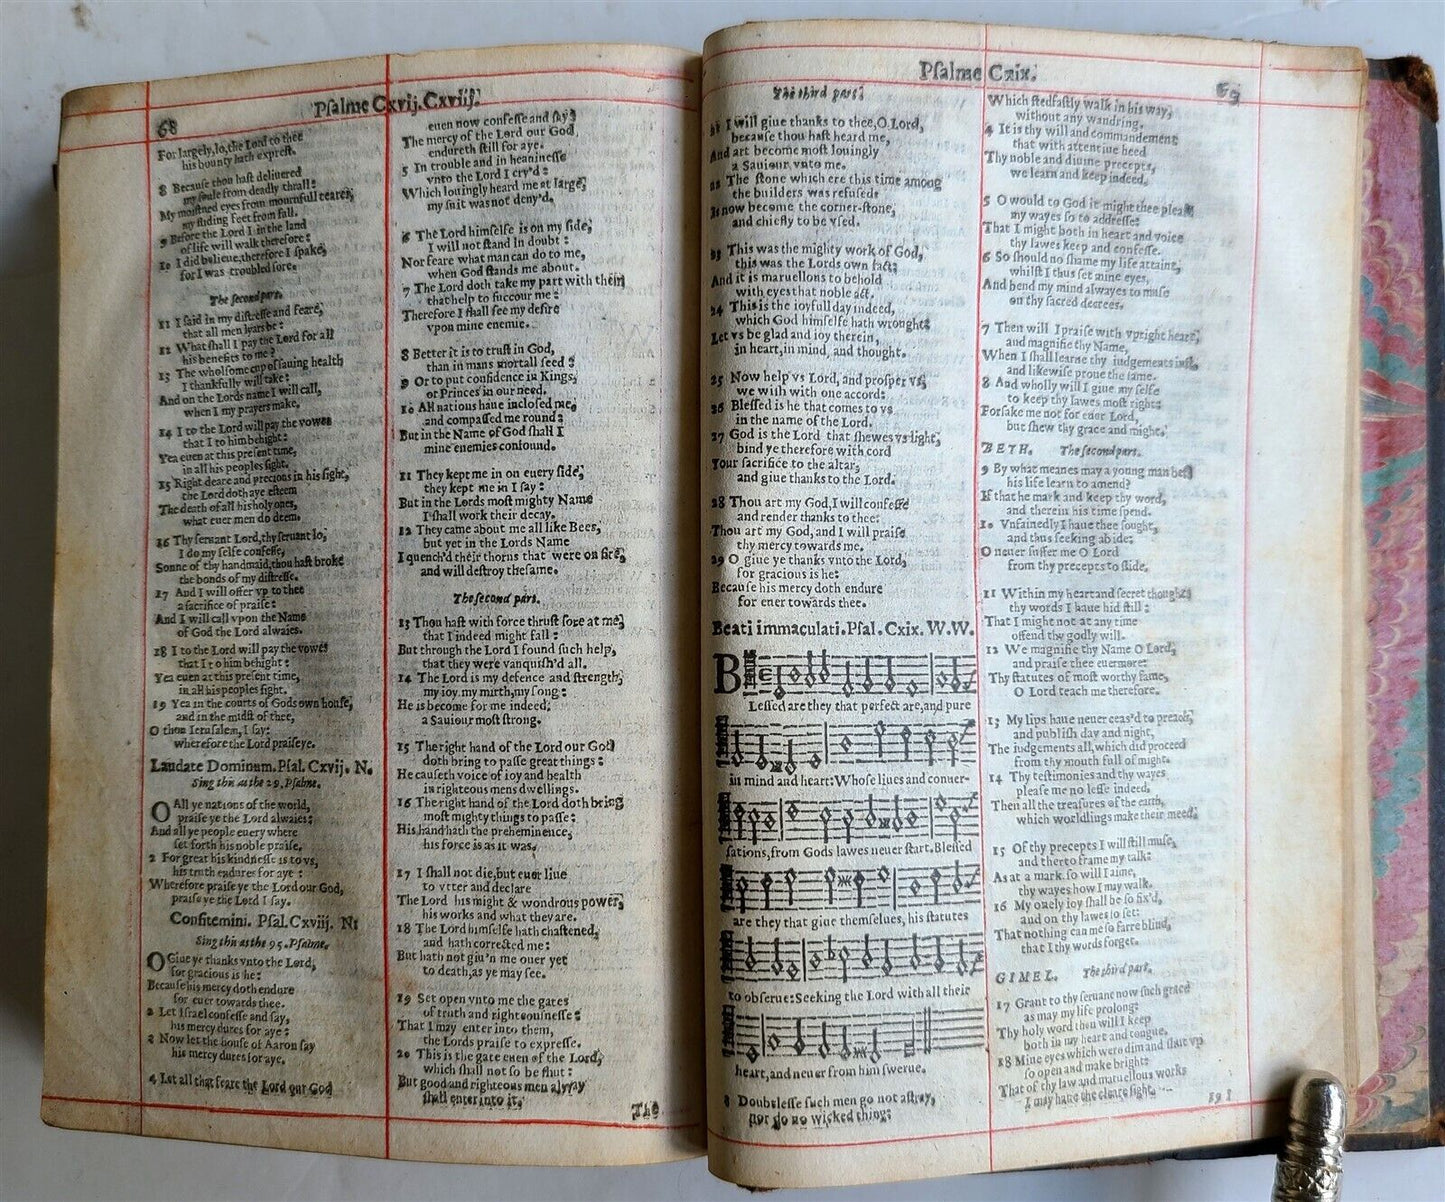 68
Psalme Cxvij.Cxviij.
For largely, lo, the Lord to thee
his bounty hath exprest.
8 Because thou hast delivered
my soule from deadly thrall:
My moistned eyes from mournfull teares,
my sliding feet from fall.
9 Before the Lord I in the land
of life will walk therefore:
10 I did beleeue, therefore I spake,
for I was troubled sore.
The second part.
11 I said in my distresse and feare,
that all men lyars be:
12 What shall I pay the Lord for all
his benefits to me?
13 The wholsome cup of sauing health
I thankfully will take:
And on the Lords name I will call,
when I my prayers make.
14 I to the Lord will pay the vowes
that I to him behight:
Yea euen at this present time,
in all his peoples sight.
15 Right deare and precious in his sight,
the Lord doth aye esteem
The death of all his holy ones,
what euer men do deem.
16 Thy seruant Lord, thy seruant lo,
I do my selfe confesse,
Sonne of thy handmaid, thou hast broke
the bonds of my distresse.
17 And I will offer vp to thee
a sacrifice of praise:
And I will call vpon the Name
of God the Lord alwaies.
18 I to the Lord will pay the vowes
that I to him behight:
Yea euen at this present time,
in all his peoples sight.
19 Yea in the courts of Gods own house,
and in the midst of thee,
O thou Ierusalem, I say:
wherefore the Lord praise ye.
Laudate Dominum. Psal. Cxvij. N.
Sing this as the 29. Psalme.
O All ye nations of the world,
praise ye the Lord alwaies:
And all ye people euery where
set forth his noble praise.
2 For great his kindnesse is to vs,
his truth endures for aye:
Wherefore praise ye the Lord our God,
praise ye the Lord I say.
Confitemini. Psal. Cxviij. N:
Sing this as the 95. Psalme.
O Giue ye thanks vnto the Lord,
for gracious is he:
Because his mercy doth endure
for euer towards thee.
2 Let Israel confesse and say,
his mercy dures for aye:
3 Now let the house of Aaron say
his mercy dures for aye.
4 Let all that feare the Lord our God
euen now confesse and say,
The mercy of the Lord our God
endureth still for aye.
5 In trouble and in heauinesse
vnto the Lord I cry'd:
Which louingly heard me at large,
my suit was not deny'd.
6 The Lord himselfe is on my side,
I will not stand in doubt:
Nor feare what man can do to me,
when God stands me about.
7 The Lord doth take my part with them
that help to succour me:
Therefore I shall see my desire
vpon mine enemie.
8 Better it is to trust in God,
than in mans mortall seed:
9 Or to put confidence in Kings,
or Princes in our need.
10 All nations haue inclosed me,
and compassed me round:
But in the Name of God shall I
mine enemies confound.
11 They kept me in on euery side,
they kept me in I say:
But in the Lords most mighty Name
I shall work their decay.
12 They came about me all like Bees,
but yet in the Lords Name
I quench'd their thorns that were on fire,
and will destroy the same.
The second part.
13 Thou hast with force thrust sore at me,
that I indeed might fall:
But through the Lord I found such help,
that they were vanquish'd all.
14 The Lord is my defence and strength,
my ioy. my mirth, my song:
He is become for me indeed,
a Sauiour most strong.
15 The right hand of the Lord our God
doth bring to passe great things:
He causeth voice of ioy and health
in righteous mens dwellings.
16 The right hand of the Lord doth bring
most mighty things to passe:
His hand hath the preheminence,
his force is as it was.
17 I shall not die, but euer liue
to vtter and declare
The Lord his might & wondrous power,
his works and what they are.
18 The Lord himselfe hath chastened,
and hath corrected me:
But hath not giu'n me ouer yet
to death, as ye may see.
19 Set open vnto me the gates
of truth and righteousnesse:
That I may enter into them,
the Lords praise to expresse.
20 This is the gate euen of the Lord,
which shall not so be shut:
But good and righteous men alway
shall enter into it.
The
Psalme Cxix.
69
The third part.
21 I will giue thanks to thee, O Lord,
because thou hast heard me,
And art become most louingly
a Sauiour vnto me.
22 The stone which ere this time among
the builders was refused:
Is now become the corner-stone,
and chiefly to be vsed.
23 This was the mighty work of God,
this was the Lords own fact:
And it is maruellous to behold
with eyes that noble act.
24 This is the ioyfull day indeed,
which God himselfe hath wrought:
Let vs be glad and ioy therein,
in heart, in mind, and thought.
25 Now help vs Lord, and prosper vs,
we wish with one accord:
26 Blessed is he that comes to vs
in the name of the Lord.
27 God is the Lord that shewes vs light,
bind ye therefore with cord
Your sacrifice to the altar,
and giue thanks to the Lord.
28 Thou art my God, I will confesse
and render thanks to thee:
Thou art my God, and I will praise
thy mercy towards me.
29 O giue ye thanks vnto the Lord,
for gracious is he:
Because his mercy doth endure
for euer towards thee.
Beati immaculati. Psal. Cxix. W.W.
B
Lessed are they that perfect are, and pure
in mind and heart: Whose liues and conuer-
sations, from Gods lawes neuer start. Blessed
are they that giue themselues, his statutes
to obserue: Seeking the Lord with all their
heart, and neuer from him swerue.
2 Doubtlesse such men go not astray,
nor do no wicked thing:
Which stedfastly walk in his way,
without any wandring.
4 It is thy will and commandement
that with attentiue heed
Thy noble and diuine precepts,
we learn and keep indeed.
5 O would to God it might thee please
my wayes so to addresse:
That I might both in heart and voice
thy lawes keep and confesse.
6 So should no shame my life attaint,
whilst I thus set mine eyes,
And bend my mind alwayes to muse
on thy sacred decrees.
7 Then will I praise with vpright heart,
and magnifie thy Name,
When I shall learne thy iudgements iust,
and likewise proue the same.
8 And wholly will I giue my selfe
to keep thy lawes most right:
Forsake me not for euer Lord,
but shew thy grace and might.
BETH. The second part.
9 By what meanes may a young man best
his life learn to amend?
If that he mark and keep thy word,
and therein his time spend.
10 Vnfainedly I haue thee sought,
and thus seeking abide:
O neuer suffer me O Lord
from thy precepts to slide.
11 Within my heart and secret thoughts
thy words I haue hid still:
That I might not at any time
offend thy godly will.
12 We magnifie thy Name O Lord,
and praise thee euermore:
Thy statutes of most worthy fame,
O Lord teach me therefore.
13 My lips haue neuer ceas'd to preach,
and publish day and night,
The iudgements all, which did proceed
from thy mouth full of might.
14 Thy testimonies and thy wayes
please me no lesse indeed,
Then all the treasures of the earth,
which worldlings make their meed.
15 Of thy precepts I will still muse,
and thereto frame my talk:
As at a mark so will I aime,
thy wayes how I may walk.
16 My onely ioy shall be so fix'd,
and on thy lawes so set:
That nothing can me so farre blind,
that I thy words forget.
GIMEL. The third part.
17 Grant to thy seruant now such grace
as may my life prolong:
Thy holy word then will I keep
both in my heart and tongue.
18 Mine eyes which were dim and shut vp
so open and make bright:
That of thy law and maruellous works
I may haue the cleare sight.